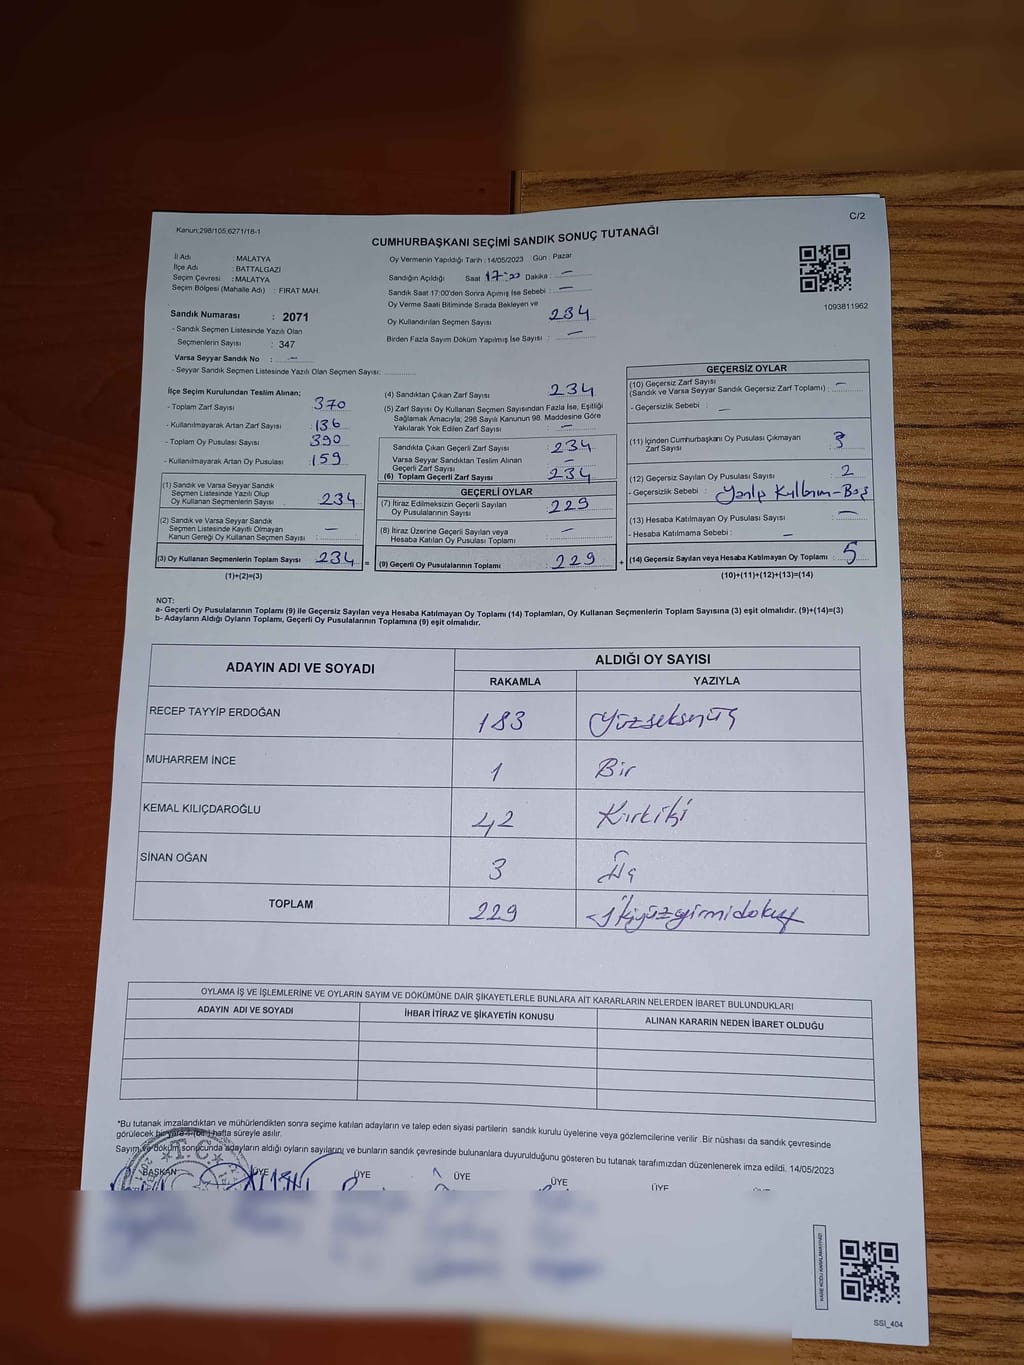 C/2
Kanun:298/105;6271/18-1
CUMHURBAŞKANI SEÇİMİ SANDIK SONUÇ TUTANAĞI
İl Adı : MALATYA
İlçe Adı : BATTALGAZİ
Seçim Çevresi : MALATYA
Seçim Bölgesi (Mahalle Adı) : FIRAT MAH.
Oy Vermenin Yapıldığı Tarih : 14/05/2023 Gün : Pazar
Sandığın Açıldığı Saat 17:00 Dakika : —
Sandık Saat 17:00'den Sonra Açımış İse Sebebi : —
Oy Verme Saati Bitiminde Sırada Bekleyen ve
Oy Kullandırılan Seçmen Sayısı 234
Birden Fazla Sayım Döküm Yapılmış İse Sayısı : —
1093811962
Sandık Numarası : 2071
- Sandık Seçmen Listesinde Yazılı Olan
Seçmenlerin Sayısı : 347
Varsa Seyyar Sandık No : —
- Seyyar Sandık Seçmen Listesinde Yazılı Olan Seçmen Sayısı:
İlçe Seçim Kurulundan Teslim Alınan;
- Toplam Zarf Sayısı 370
- Kullanılmayarak Artan Zarf Sayısı : 136
- Toplam Oy Pusulası Sayısı 390
- Kullanılmayarak Artan Oy Pusulası : 159
(1) Sandık ve Varsa Seyyar Sandık
Seçmen Listesinde Yazılı Olup
Oy Kullanan Seçmenlerin Sayısı : 234
(2) Sandık ve Varsa Seyyar Sandık
Seçmen Listesinde Kayıtlı Olmayan
Kanun Gereği Oy Kullanan Seçmen Sayısı : —
(3) Oy Kullanan Seçmenlerin Toplam Sayısı : 234 =
(1)+(2)=(3)
(4) Sandıktan Çıkan Zarf Sayısı : 234
(5) Zarf Sayısı Oy Kullanan Seçmen Sayısından Fazla İse, Eşitliği
Sağlamak Amacıyla; 298 Sayılı Kanunun 98. Maddesine Göre
Yakılarak Yok Edilen Zarf Sayısı : —
Sandıkta Çıkan Geçerli Zarf Sayısı : 234
Varsa Seyyar Sandıktan Teslim Alınan
Geçerli Zarf Sayısı : —
(6) Toplam Geçerli Zarf Sayısı : 234
GEÇERLİ OYLAR
(7) İtiraz Edilmeksizin Geçerli Sayılan
Oy Pusulalarının Sayısı : 229
(8) İtiraz Üzerine Geçerli Sayılan veya
Hesaba Katılan Oy Pusulaları Toplamı : —
(9) Geçerli Oy Pusulalarının Toplamı : 229 +
GEÇERSİZ OYLAR
(10) Geçersiz Zarf Sayısı
(Sandık ve Varsa Seyyar Sandık Geçersiz Zarf Toplamı) : —
- Geçersizlik Sebebi : —
(11) İçinden Cumhurbaşkanı Oy Pusulası Çıkmayan
Zarf Sayısı : 3
(12) Geçersiz Sayılan Oy Pusulası Sayısı : 2
- Geçersizlik Sebebi : Boş
(13) Hesaba Katılmayan Oy Pusulası Sayısı : —
- Hesaba Katılmama Sebebi : —
(14) Geçersiz Sayılan veya Hesaba Katılmayan Oy Toplamı : 5
(10)+(11)+(12)+(13)=(14)
NOT:
a- Geçerli Oy Pusulalarının Toplamı (9) ile Geçersiz Sayılan veya Hesaba Katılmayan Oy Toplamı (14) Toplamları, Oy Kullanan Seçmenlerin Toplam Sayısına (3) eşit olmalıdır. (9)+(14)=(3)
b- Adayların Aldığı Oyların Toplamı, Geçerli Oy Pusulalarının Toplamına (9) eşit olmalıdır.
ADAYIN ADI VE SOYADI
ALDIĞI OY SAYISI
RAKAMLA YAZIYLA
RECEP TAYYİP ERDOĞAN 183 Yüzseksenüç
MUHARREM İNCE 1 Bir
KEMAL KILIÇDAROĞLU 42 Kırkiki
SİNAN OĞAN 3 Üç
TOPLAM 229 İkiyüzyirmidokuz
OYLAMA İŞ VE İŞLEMLERİNE VE OYLARIN SAYIM VE DÖKÜMÜNE DAİR ŞİKAYETLERLE BUNLARA AİT KARARLARIN NELERDEN İBARET BULUNDUKLARI
ADAYIN ADI VE SOYADI İHBAR İTİRAZ VE ŞİKAYETİN KONUSU ALINAN KARARIN NEDEN İBARET OLDUĞU
*Bu tutanak imzalandıktan ve mühürlendikten sonra seçime katılan adayların ve talep eden siyasi partilerin sandık kurulu üyelerine veya gözlemcilerine verilir .Bir nüshası da sandık çevresinde
görülecek bir yere 1 (bir) hafta süreyle asılır.
Sayım ve döküm sonucunda adayların aldığı oyların sayılarını ve bunların sandık çevresinde bulunanlara duyurulduğunu gösteren bu tutanak tarafımızdan düzenlenerek imza edildi. 14/05/2023
T.C.
BAŞKAN ÜYE ÜYE ÜYE ÜYE ÜYE
SSI_404